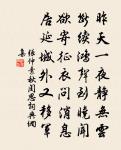 秋天一夜靜無雲
斷續鴻聲到曉聞
欲寄征衣問消息
居延城外又移軍
張仲素秋閨思詞典網
集